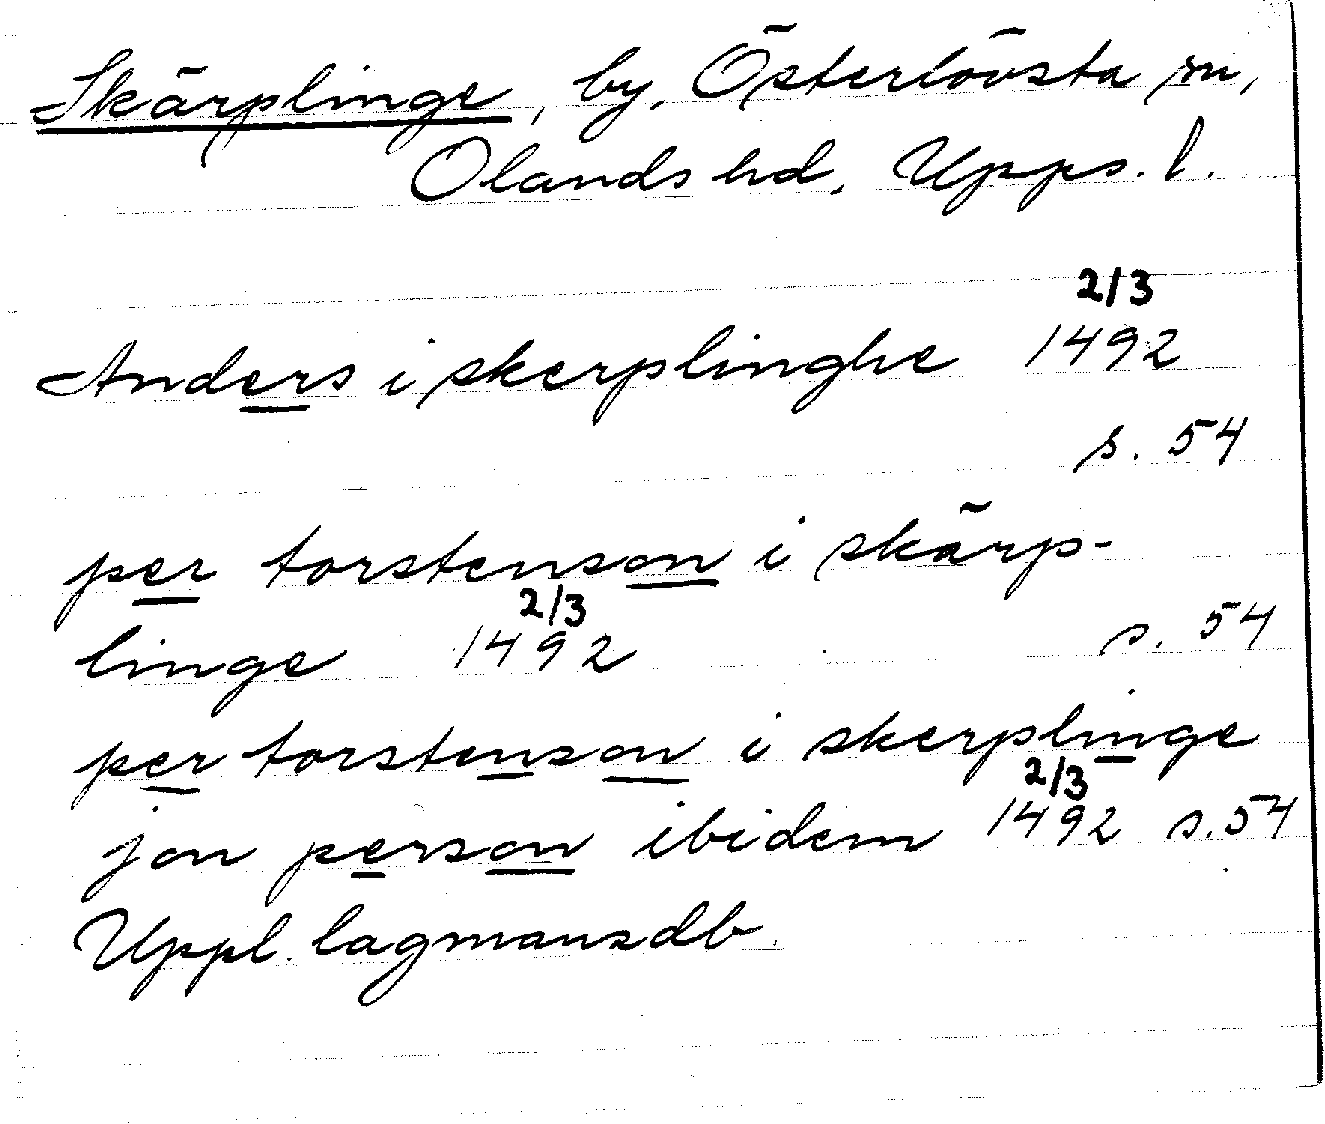 Skärplinge, by, Österlövsta sn,
Olands hd, Upps. l.
2/3
Anders i skerplinghe 1492
s. 54
per torstenson i skärp-
2/3
linge 1492 s. 54
per torstenson i skerplinge
2/3
jon person ibidem 1492 s. 54
Uppl. lagmansdb.